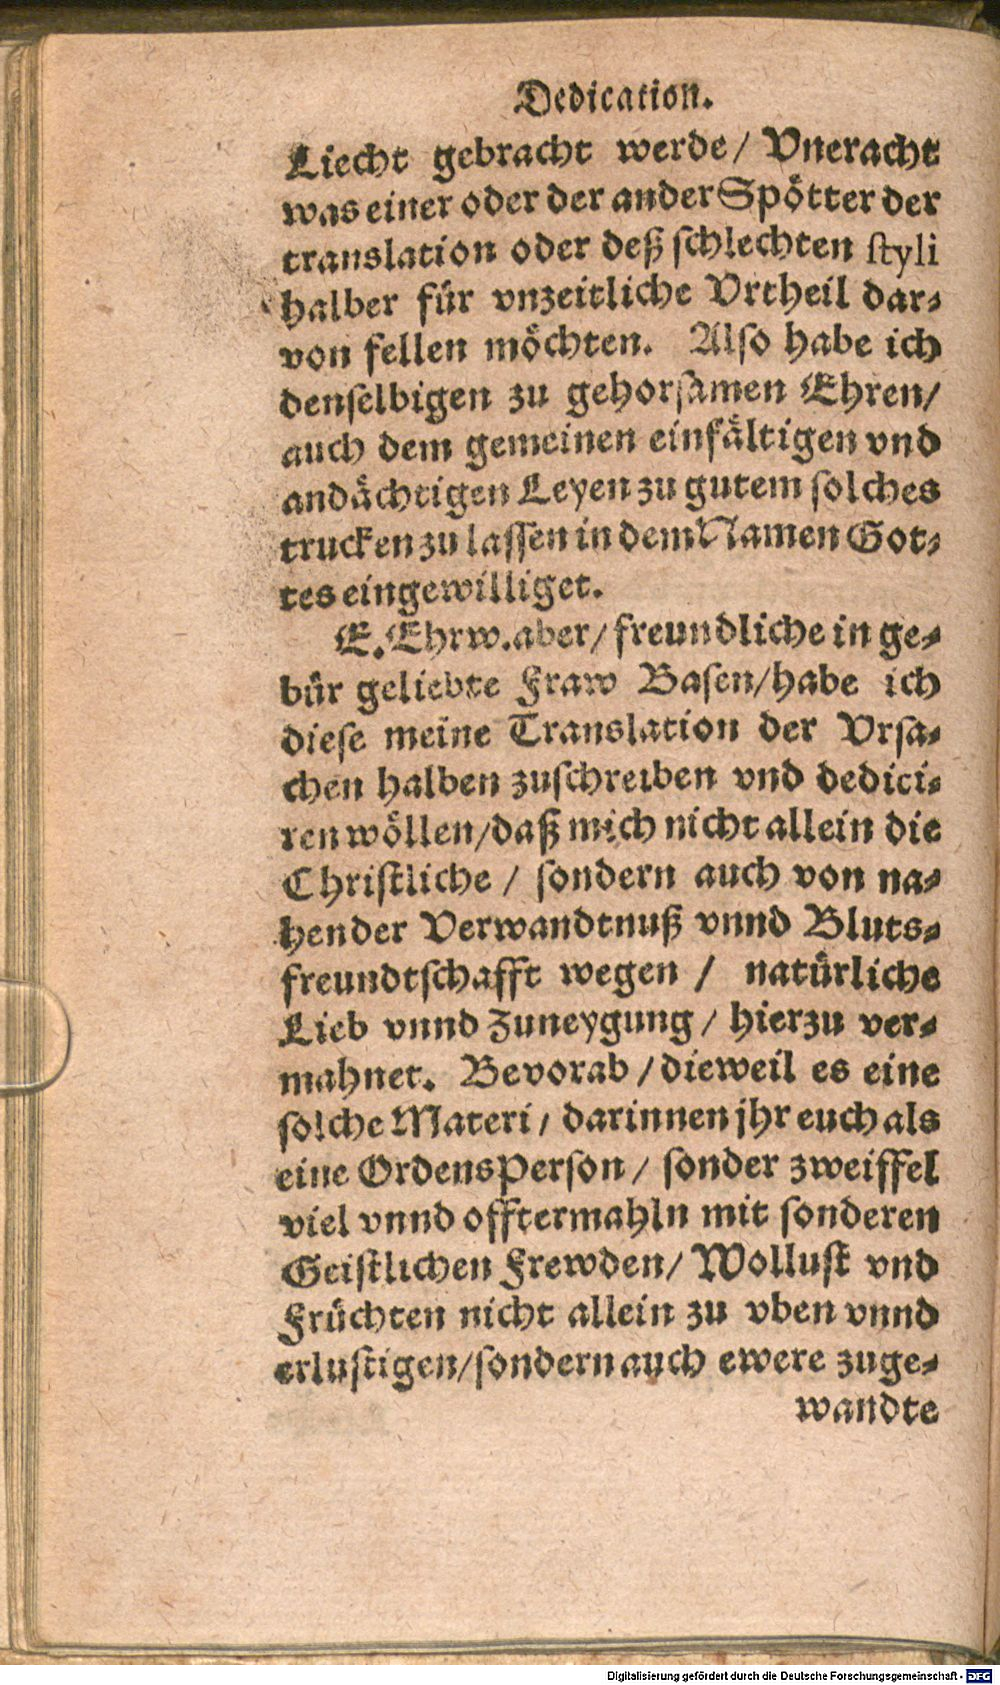 Dedication.
Liecht gebracht werde / Vneracht
was einer oder der ander Spötter der
translation oder deß schlechten styli
halber für vnzeitliche Vrtheil dar-
von fellen möchten. Also habe ich
denselbigen zu gehorsamen Ehren/
auch dem gemeinen einfältigen vnd
andächtigen Leyen zu gutem solches
trucken zu lassen in dem Namen Got-
tes eingewilliget.
E. Ehrw. aber/ freundliche in ge-
bür geliebte Fraw Basen/habe ich
diese meine Translation der Vrsa-
chen halben zuschreiben vnd dedici-
ren wöllen/daß mich nicht allein die
Christliche / sondern auch von na-
hender Verwandtnuß vnnd Bluts-
freundtschafft wegen / natürliche
Lieb vnnd Zuneygung / hierzu ver-
mahnet. Bevorab / dieweil es eine
solche Materi / darinnen jhr euch als
eine OrdensPerson / sonder zweiffel
viel vnnd offtermahln mit sonderen
Geistlichen Frewden/ Wollust vnd
Früchten nicht allein zu vben vnnd
erlustigen/sondern auch ewere zuge-
wandte
Digitalisierung gefördert durch die Deutsche Forschungsgemeinschaft - DFG